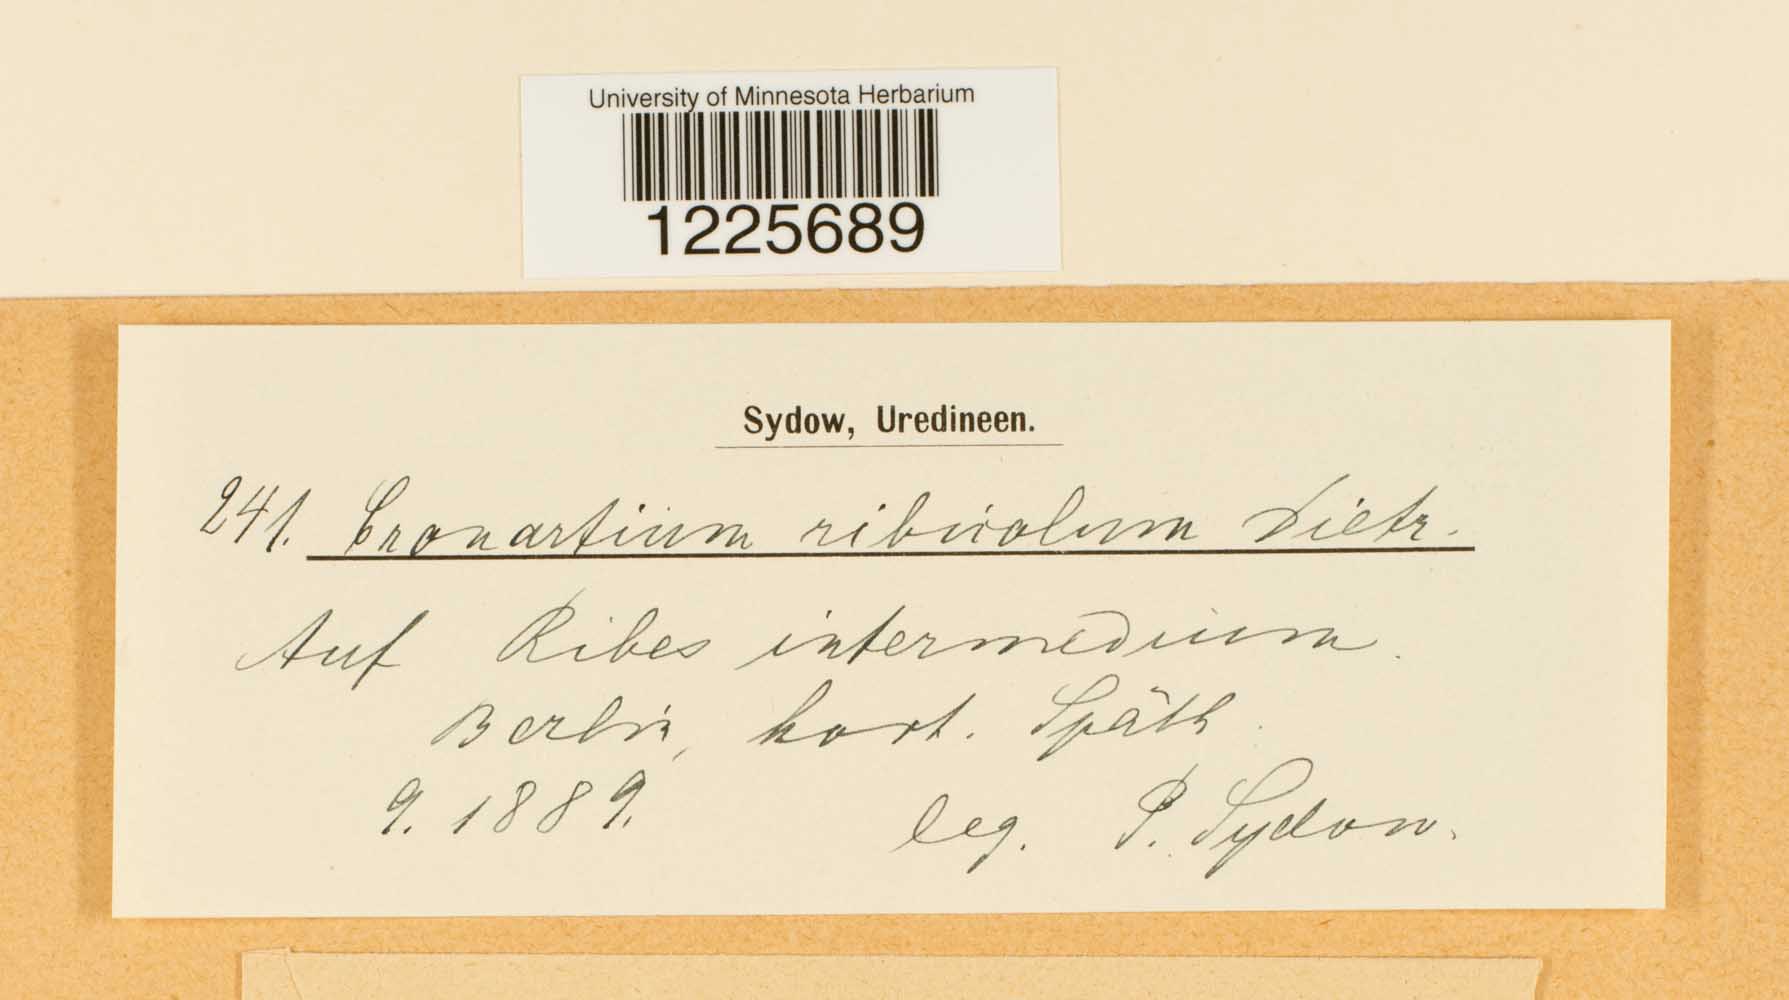 University of Minnesota Herbarium
1225689
Sydow, Uredineen.
241. Cronartium ribicolum Dietr.
Auf Ribes intermedium.
Berlin, hort. Späth.
9. 1889. leg. P. Sydow.